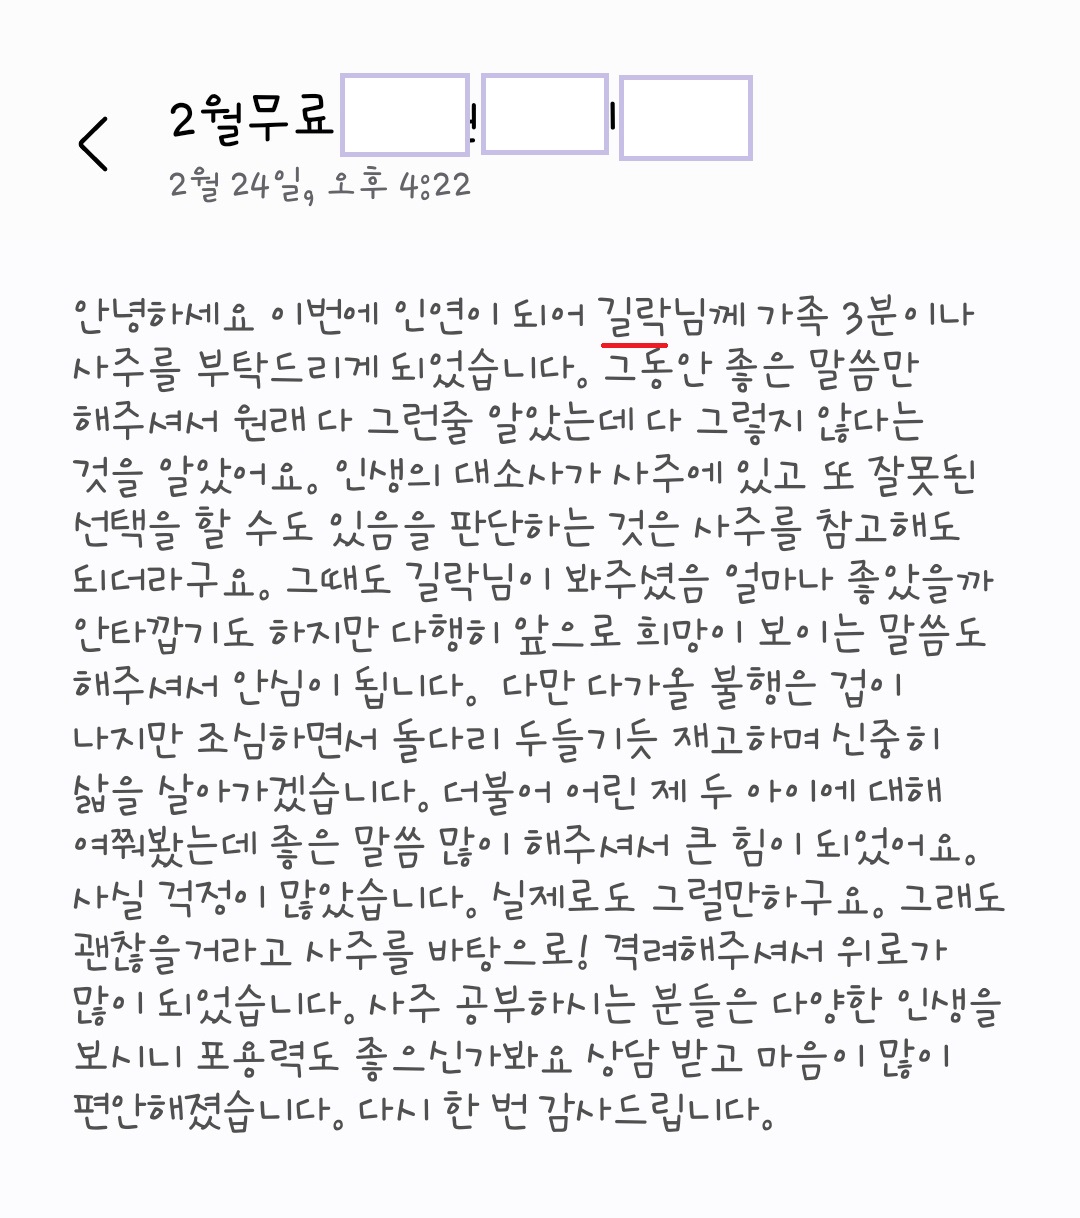 2월무료
2월 24일, 오후 4:22
안녕하세요 이번에 인연이 되어 길락님께 가족 3분이나
사주를 부탁드리게 되었습니다. 그동안 좋은 말씀만
해주셔서 원래 다 그런줄 알았는데 다 그렇지 않다는
것을 알았어요. 인생의 대소사가 사주에 있고 또 잘못된
선택을 할 수도 있음을 판단하는 것은 사주를 참고해도
되더라구요. 그때도 길락님이 봐주셨음 얼마나 좋았을까
안타깝기도 하지만 다행히 앞으로 희망이 보이는 말씀도
해주셔서 안심이 됩니다. 다만 다가올 불행은 겁이
나지만 조심하면서 돌다리 두들기듯 재고하며 신중히
삶을 살아가겠습니다. 더불어 어린 제 두 아이에 대해
여쭤봤는데 좋은 말씀 많이 해주셔서 큰 힘이 되었어요.
사실 걱정이 많았습니다. 실제로도 그럴만하구요. 그래도
괜찮을거라고 사주를 바탕으로! 격려해주셔서 위로가
많이 되었습니다. 사주 공부하시는 분들은 다양한 인생을
보시니 포용력도 좋으신가봐요 상담 받고 마음이 많이
편안해졌습니다. 다시 한 번 감사드립니다.